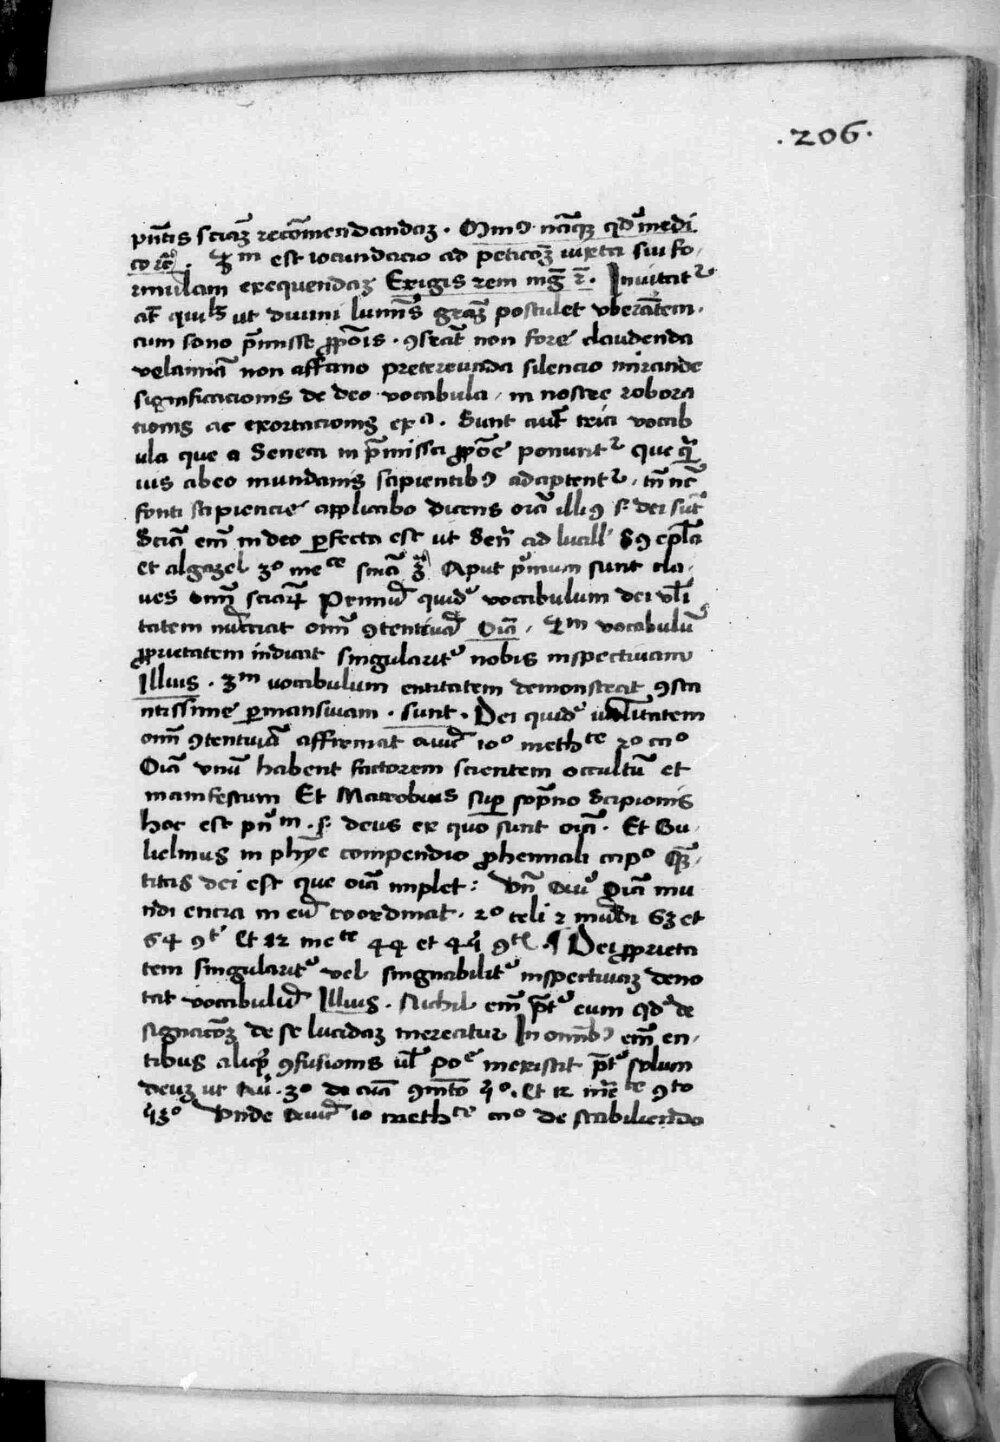 .206.
pñtis sciaꝫ recõmendandaꝫ. Om̃s nãqꝫ qđ medi
2m est iocundacio ad peticõꝫ iuxta sui fo-
rmulam exequendaꝫ Exigis rem mg̃ r̃. Inuitat
at ut diuini lum̃s gr̃aꝫ postulet vberãtem.
cum sono p̃misse ꝓpõis. ꝯseat̃ non fore claudenda
velamĩa non affano pretereunda silencio mirande
significacionis de deo vocabula. in nostre robora
tionis ac exortacionis Sunt aut̃ tria vocab
ula que a Seneca in p̃missa ꝓpõe ponunt᷑ que
ius abeo mundanis sapientibꝰ adaptent᷑. tñ
fonti sapiencie applicabo dicens oĩa illiꝰ s. dei sũt
Sciã em̃ in deo ꝑfecta est ut Señ ad lucill' 89 epl̃a
et algazel 3º me ce Aput primum sunt cla-
ues om̃ sciaꝝ Primũ quidẽ vocabulum dei vtili
tatem nũciat om̃ ꝯtentiuã Oĩa. 2m vocabulũ
ꝓprietatem indicat singularit᷑ nobis inspectiuam
Illius. 3m vocabulum entitatem demonstrat ꝯsta
ntissime ꝑmansiuam. sunt. Dei quidẽ
om̃ ꝯtentiuã affirmat auic̃ 10º meth ce 2º caº
Oĩa vnũ habent factorem scientem occultũ et
manifestum Et Macrobius suꝑ sop̃no Scipionis
hoc est pñm. s. deus ex quo sunt oĩa. Et Gu-
lielmus in phye compendio ꝓhemiali capº
titas dei est que oĩa implet: Vñ Oĩa mu
ndi entia in eũ coordinat. 2º celi 2 mũdi 63 et
64 ꝯt̃ Et 12 me ce 44 et 45 ꝯt̃ ¶ Dei ꝓprieta
tem singularit᷑ vel singnabilit᷑ inspectiuaꝫ deno
tat vocabulũ Illius. Nichil em̃ p̃t᷑ eum qđ de
signacõꝫ de se lucidaꝫ mereatur In omĩbꝰ em̃ en-
tibus aliqđ ꝯfusionis vl̃ poe meristit p̃t᷑ solum
deuꝫ ut 3º de aĩa ꝯmẽto 5º. Et 12 me ce ꝯto
53º Vnde auic̃ 10 meth ce caº de stabiliendo